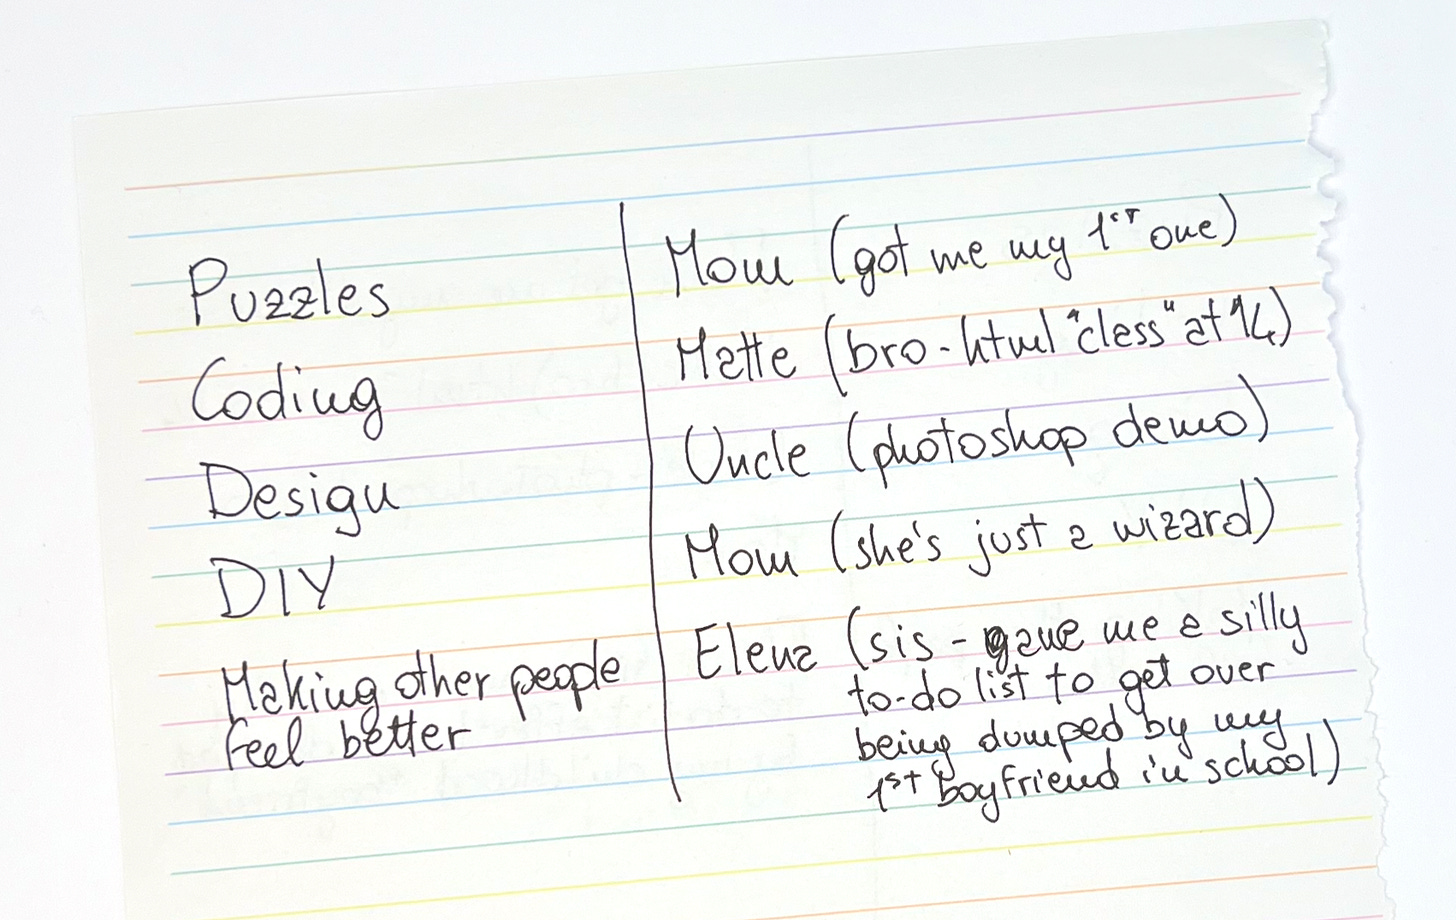 Puzzles
Mom (got me my 1st one)
Coding
Matte (bro - html "class" at 14)
Design
Uncle (photoshop demo)
DIY
Mom (she's just a wizard)
Making other people
feel better
Elena (sis - gave me a silly
to-do list to get over
being dumped by my
1st boyfriend in school)